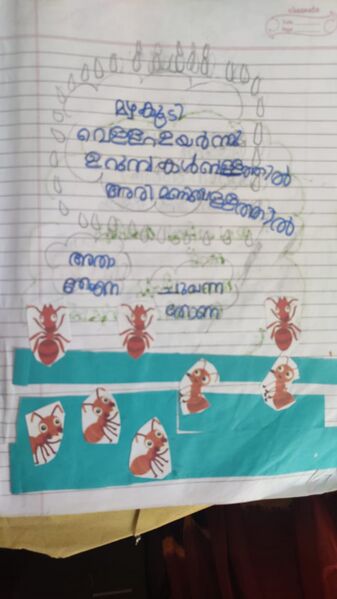 classmate
Date
Page
മഴകൂടി
വെള്ളമുയർന്നു
ഉറുമ്പുകൾ വെള്ളത്തിൽ
അരി മണവെള്ളത്തിൽ
അതാ
തോണി
ചുവന്ന
തോണി